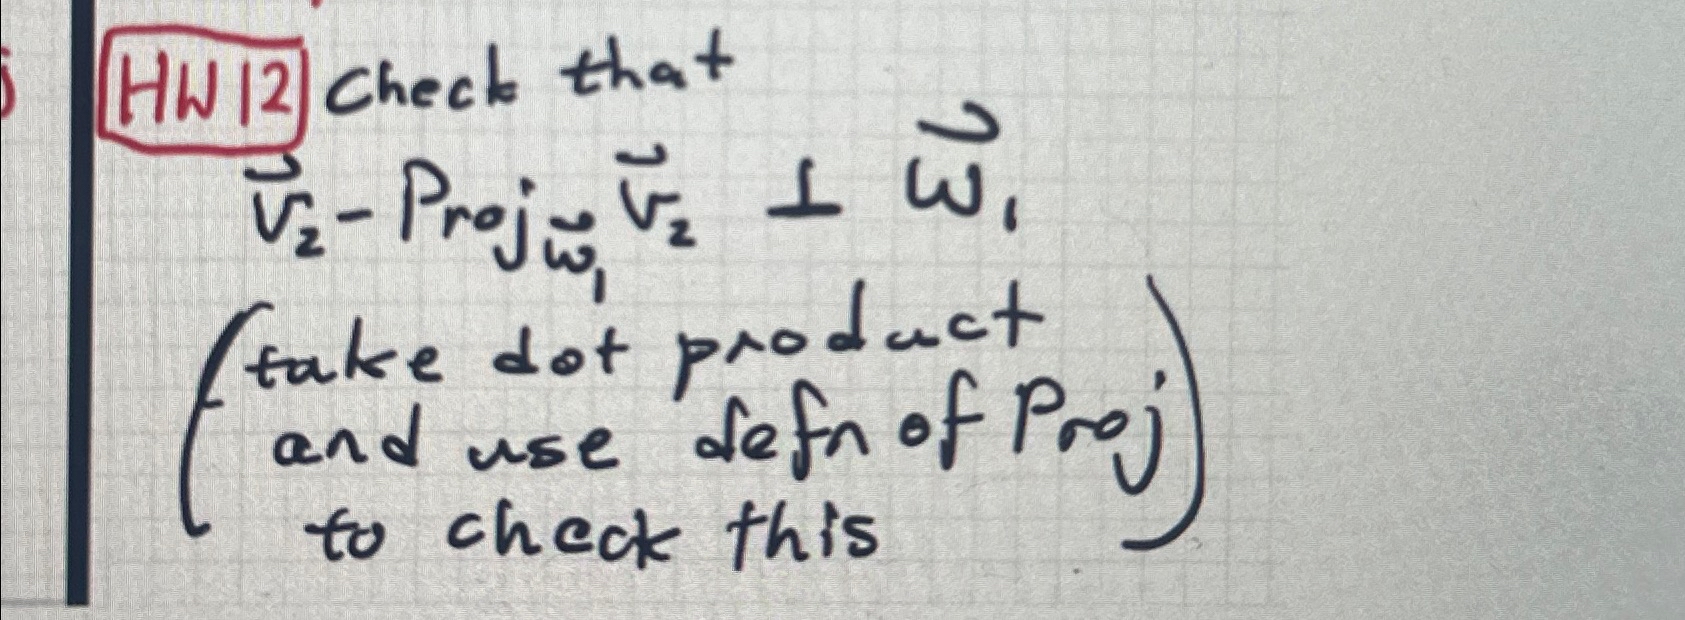 HW 12 Check that
v⃗₂ - Proj_w⃗₁ v⃗₂ ⊥ w⃗₁
(take dot product
and use defn of Proj
to check this)